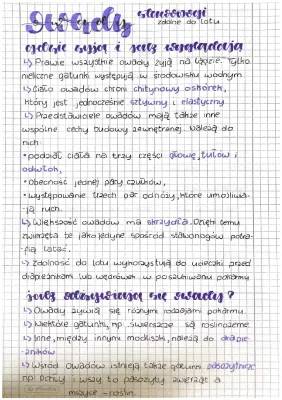 Owady stawonogi
zdolne do lotu
gdzie żyją i jak wyglądają
↳ Prawie wszystkie owady żyją na lądzie. Tylko
nieliczne gatunki występują w środowisku wodnym.
↳ Ciało owadów chroni chitynowy oskórek,
który jest jednocześnie sztywny i elastyczny
↳ Przedstawiciele owadów mają także inne
wspólne cechy budowy zewnętrznej. Należą do
nich
• podział ciała na trzy części głowę, tułów i
odwłok,
• obecność jednej pary czułków,
• występowanie trzech par odnóży, które umożliwia-
ją ruch.
↳ Większość owadów ma skrzydła. Dzięki temu
zwierzęta te jako jedyne spośród stawonogów potra-
fią latać.
↳ Zdolność do lotu wykorzystują do ucieczki przed
drapieżnikami lub wędrówek w poszukiwaniu pokarmu
jak odżywiają się owady?
↳ Owady żywią się różnymi rodzajami pokarmu.
↳ Niektóre gatunki, np. świerszcze są roślinożerne.
↳ Inne, między innymi modliszki, należą do drapie-
żników
↳ Wśród owadów istnieją także gatunki pasożytnicze
np. pchły i wszy to pasożyty zwierząt a
mszyce - roślin.